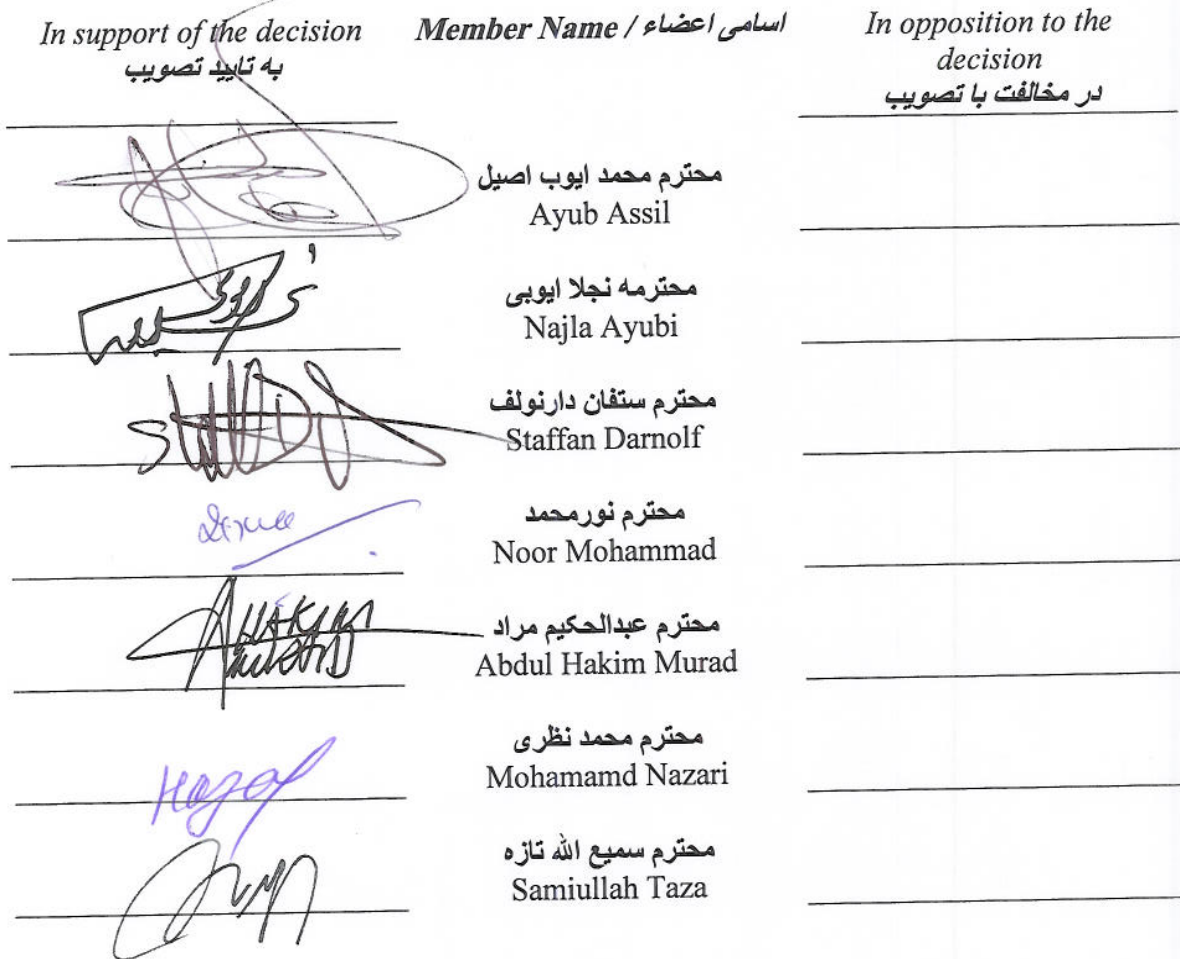 In support of the decision
به تایید تصویب
Member Name / اسامی اعضاء
In opposition to the
decision
در مخالفت با تصویب
محترم محمد ایوب اصیل
Ayub Assil
محترمه نجلا ایوبی
Najla Ayubi
محترم ستفان دارنولف
Staffan Darnolf
محترم نورمحمد
Noor Mohammad
محترم عبدالحکیم مراد
Abdul Hakim Murad
HAKIM
MURAD
محترم محمد نظری
Mohamamd Nazari
محترم سمیع الله تازه
Samiullah Taza